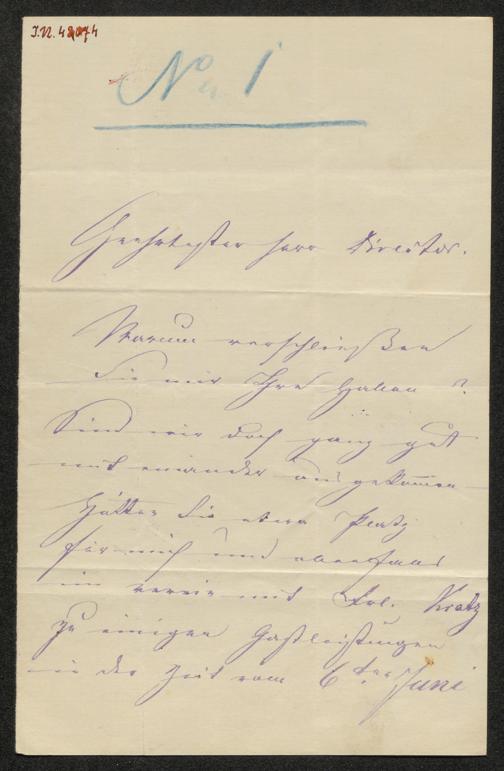 I.N. 42074
No 1
Geehrtester Herr Director.
Warum verschließen
Sie mir Ihre Hallen?
Sind wir doch ganz gut
mit einander ausgekommen
Hätten Sie etwa Platz
für mich und ebenfalls
im verein mit Frl. Kratz
zu einigen Gastleistungen
in der Zeit vom 6ten Juni